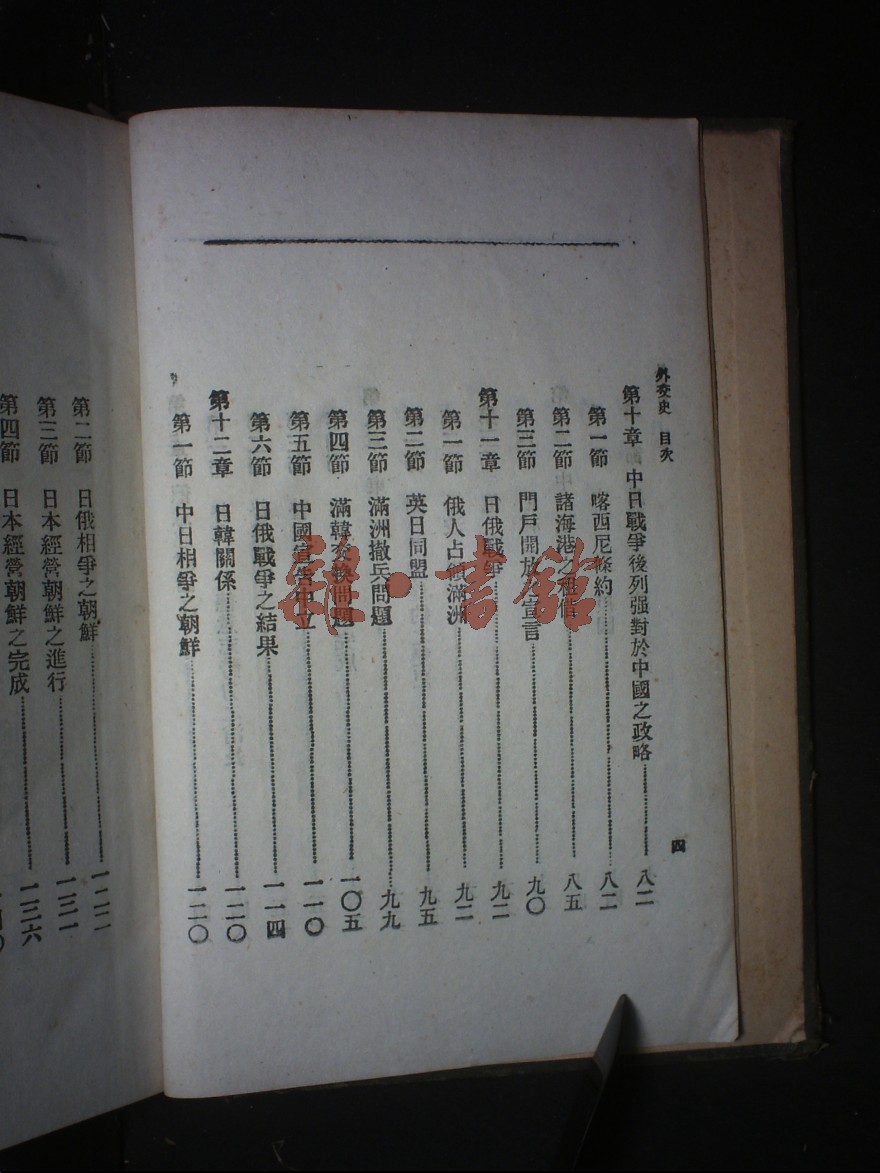 外交史 目次
第十章 中日戰爭後列强對於中國之政略 八二
第一節 喀西尼條約 八二
第二節 諸海港之租借 八五
第三節 門戶開放宣言 九〇
第十一章 日俄戰爭 九二
第一節 俄人占領滿洲 九二
第二節 英日同盟 九五
第三節 滿洲撤兵問題 九九
第四節 滿韓交換問題 一〇五
第五節 中國宣告中立 一一〇
第六節 日俄戰爭之結果 一一四
第十二章 日韓關係 一二〇
第一節 中日相爭之朝鮮 一二〇
四
第二節 日俄相爭之朝鮮 一二二
第三節 日本經營朝鮮之進行 一三一
第四節 日本經營朝鮮之完成 一三六
雜·書館